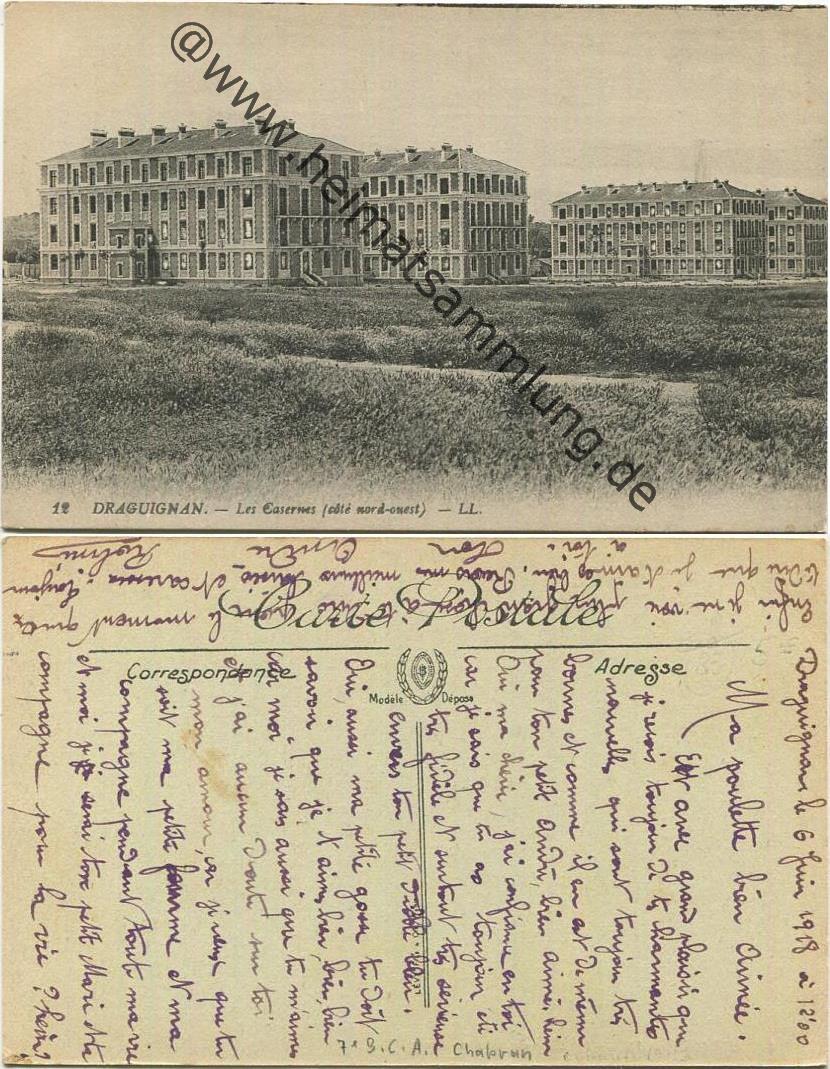 @www.heimatsammlung.de
12 DRAGUIGNAN. — Les Casernes (côté nord-ouest) — LL.
Carte Postale
Correspondance
Adresse
Modèle Déposé
Draguignan le 6 Juin 1918 à 12h00
Ma poulette bien aimée.
Est avec grand plaisir que
je reçois toujour de tes charmantes
nouvelles qui sont toujour très
bonnes et comme il en est de même
pour ton petit André, bien aimé, hein
Oui ma chérie, j'ai confiance en toi
car je sais que tu as toujour été
très fidèle et surtout très sérieuse
envers ton petit Dédé bleu.
Oui, aussi ma petite gosse tu doit
savoir que je t'aime bien, bien, bien
car moi je sais aussi que tu m'aimes
et j'ai aucun doute sur toi
mon amour, car je veux que tu
soit ma petite femme et ma
compagne pendant tout ma vie
et moi je serai ton petit Mari et ta
compagne pour la vie ? hein ?
Enfin je ne vois plus grand chose à te dire pour le moment que
te dire que je t'aime bien. Reçois mes meilleurs baisers et caresses. Toujour
à toi. Ton André
7e B.C.A. Chabran